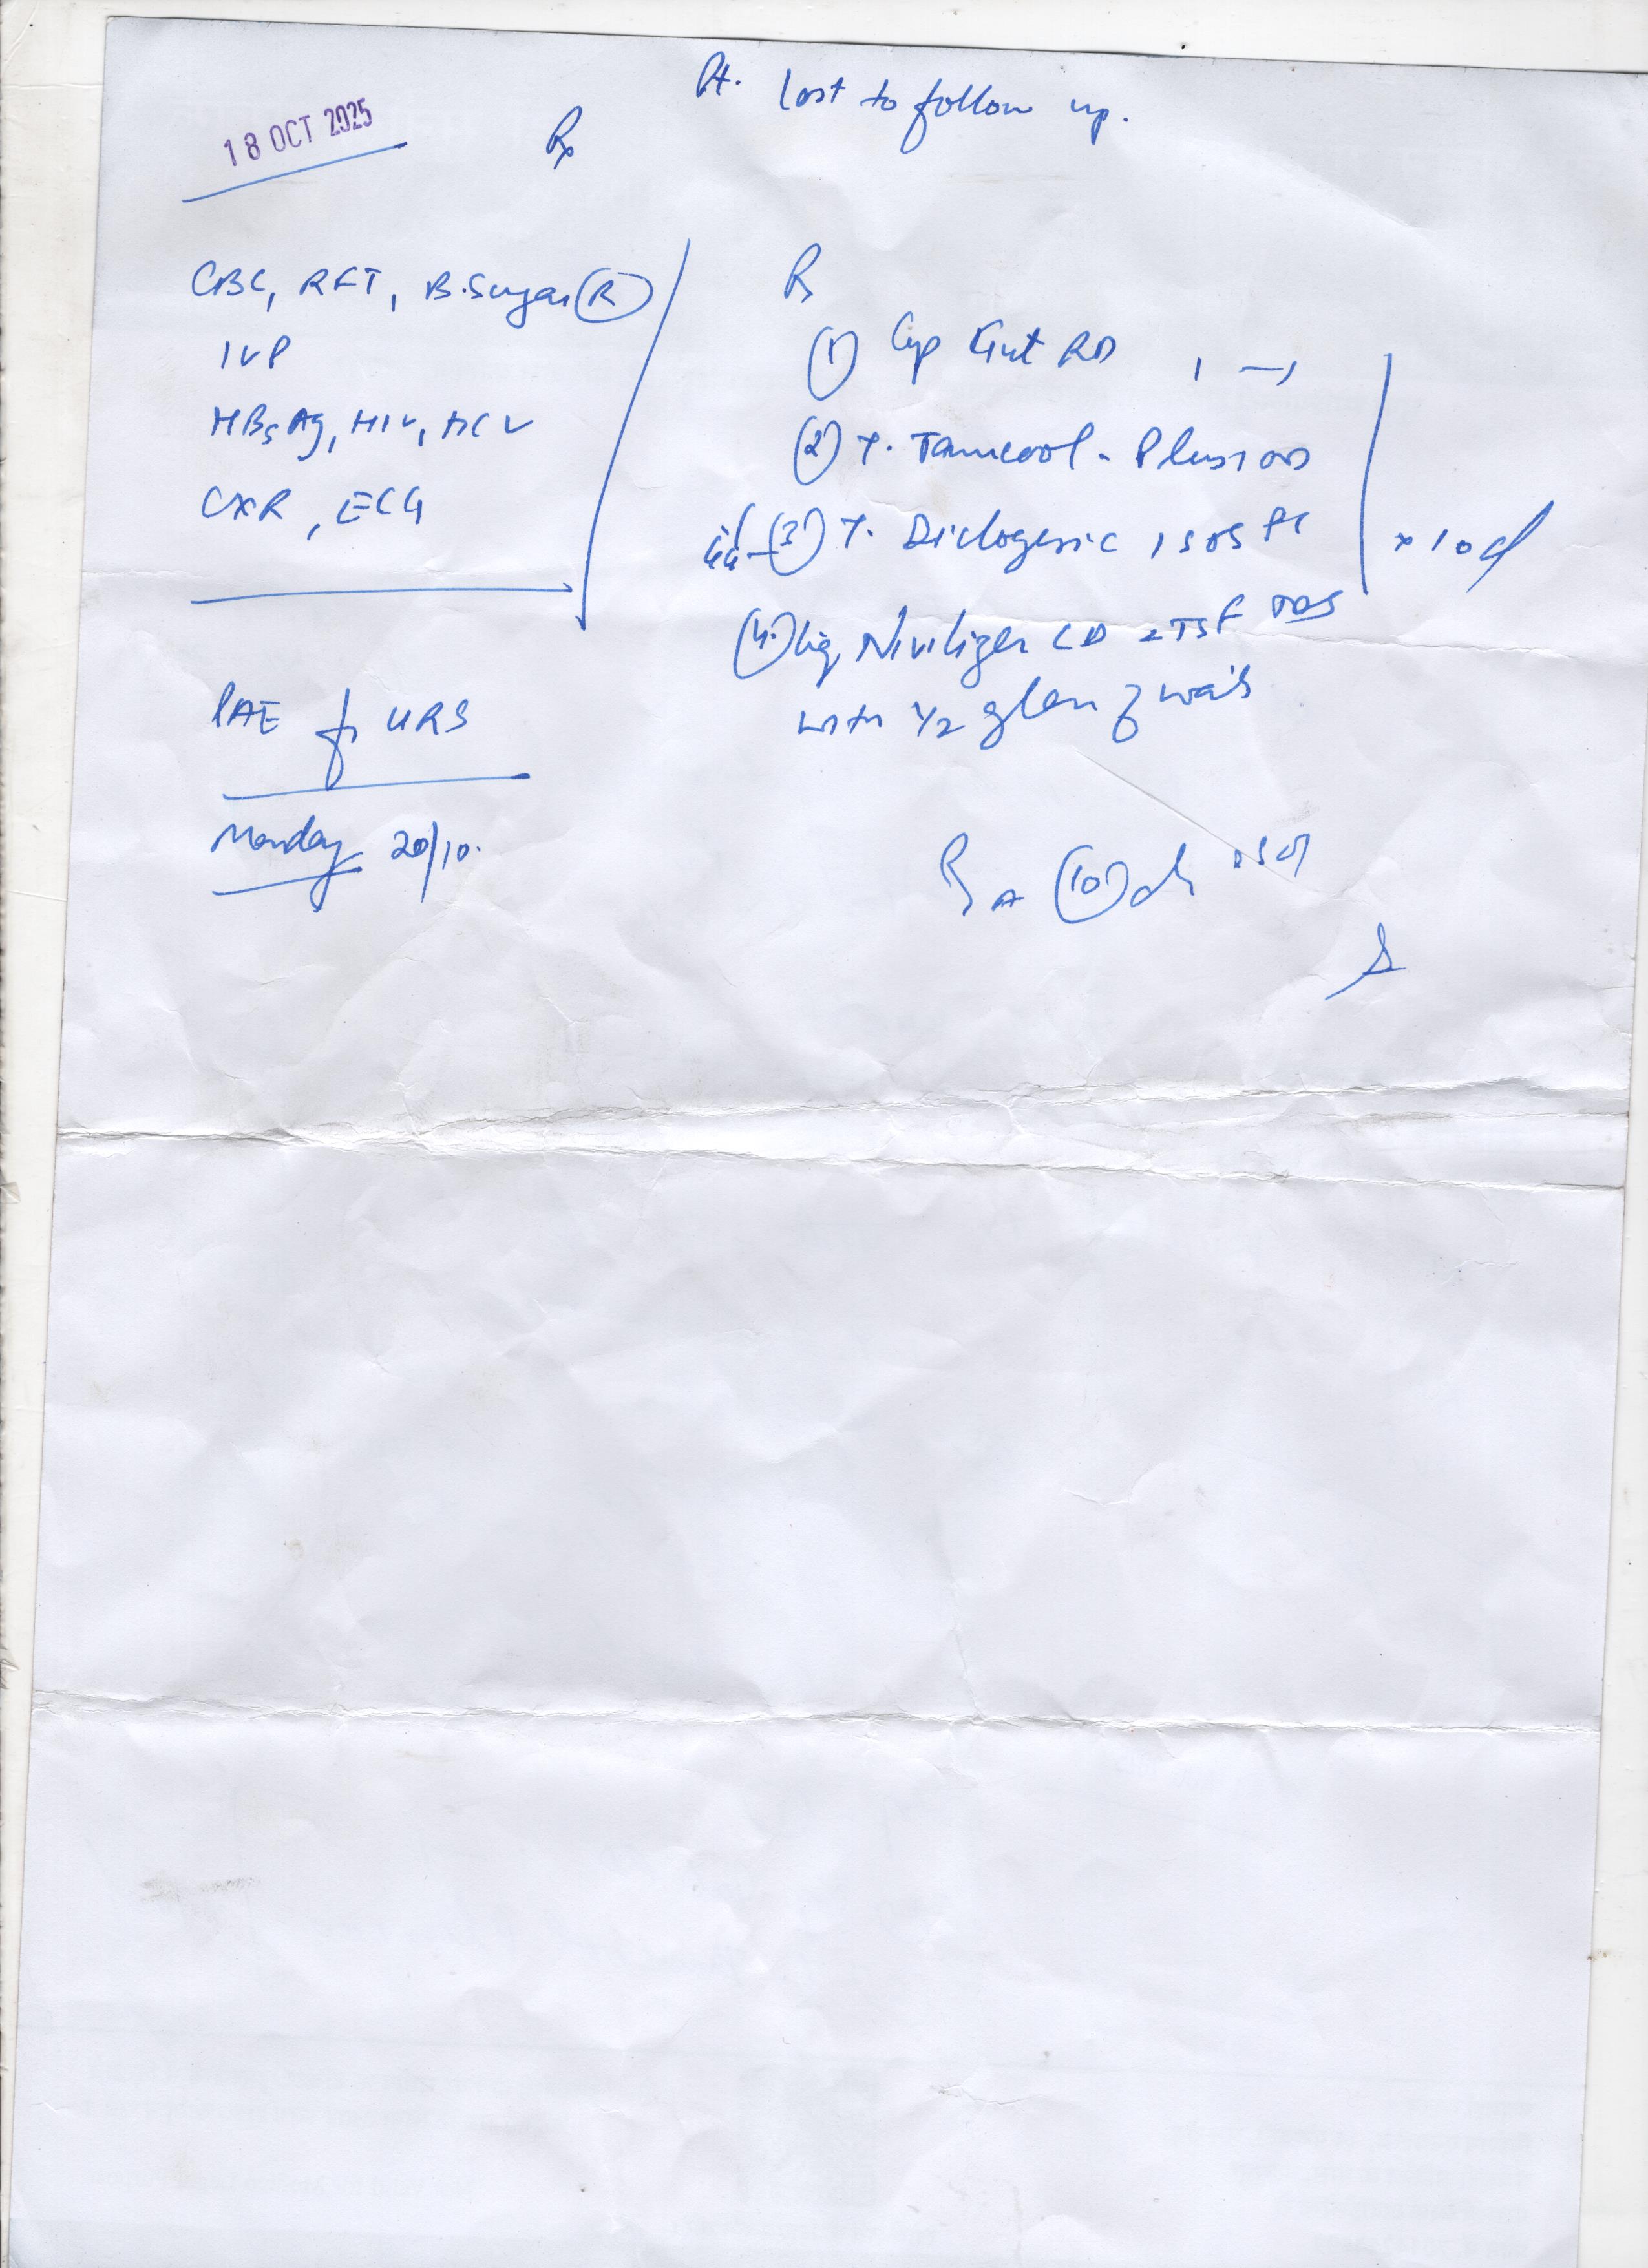 Pt. lost to follow up.
18 OCT 2025
Rx
CBC, RFT, B.Sugar (R)
IVP
HBsAg, HIV, HCV
CXR, ECG
PAE for URS
Monday 20/10.
Rx
(1) Cap RD 1 — 1
(2) T. Tamcool-Plus 1 OD
(3) T. Diclogesic 1 SOS PC
x 10 d
(4.) Liq. CD 2TSF TDS
with 1/2 glass of water
(10)